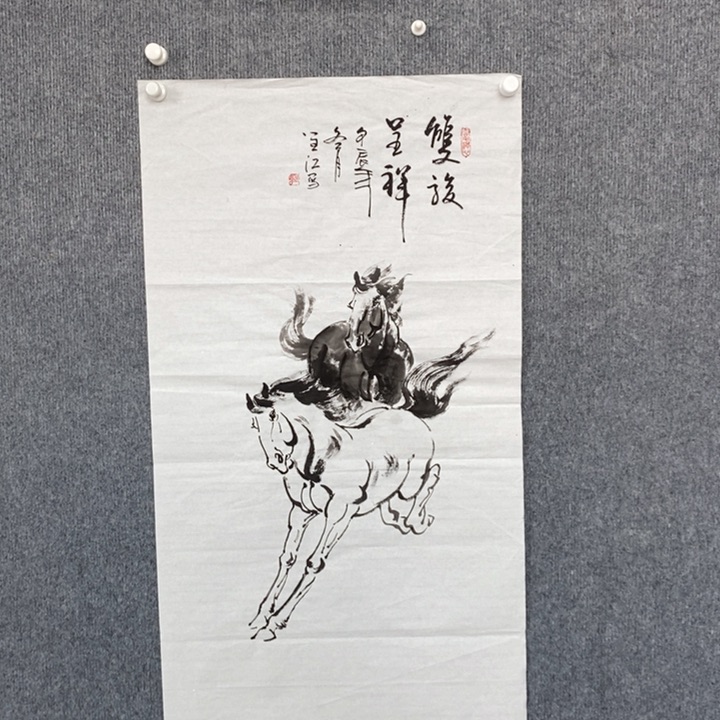 雙駿
呈祥
甲辰年
冬月
江写